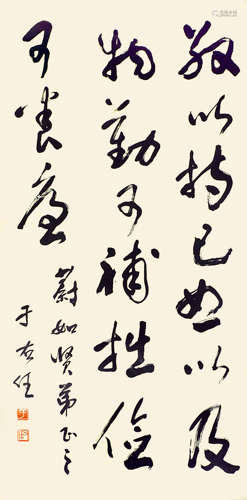 敬以持己恕以及
物勤可補拙儉
可養廉
蔚如賢弟正之
于右任